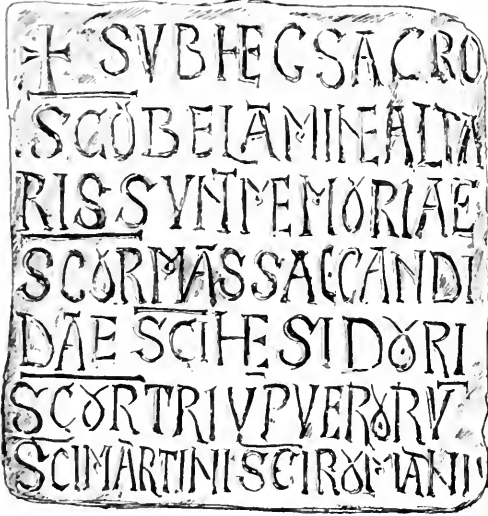 + SVBHECSACRO
SCOBELAMINEALTA
RISSVNTMEMORIAE
SCORMASSAECANDI
DAESCIHESIDORI
SCORTRIVPVERORV
SCIMARTINISCIROMANI